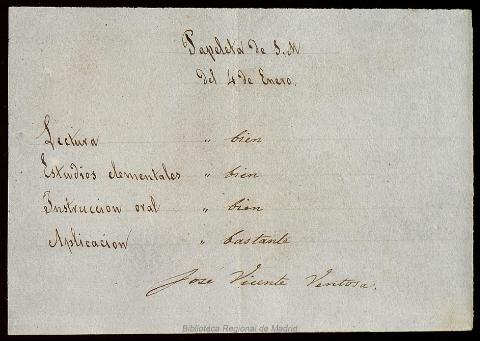 Papeleta de S.M
del 4 de Enero.
Lectura " bien
Estudios elementales " bien
Instruccion oral " bien
Aplicacion " bastante
José Vicente Ventosa.
Biblioteca Regional de Madrid